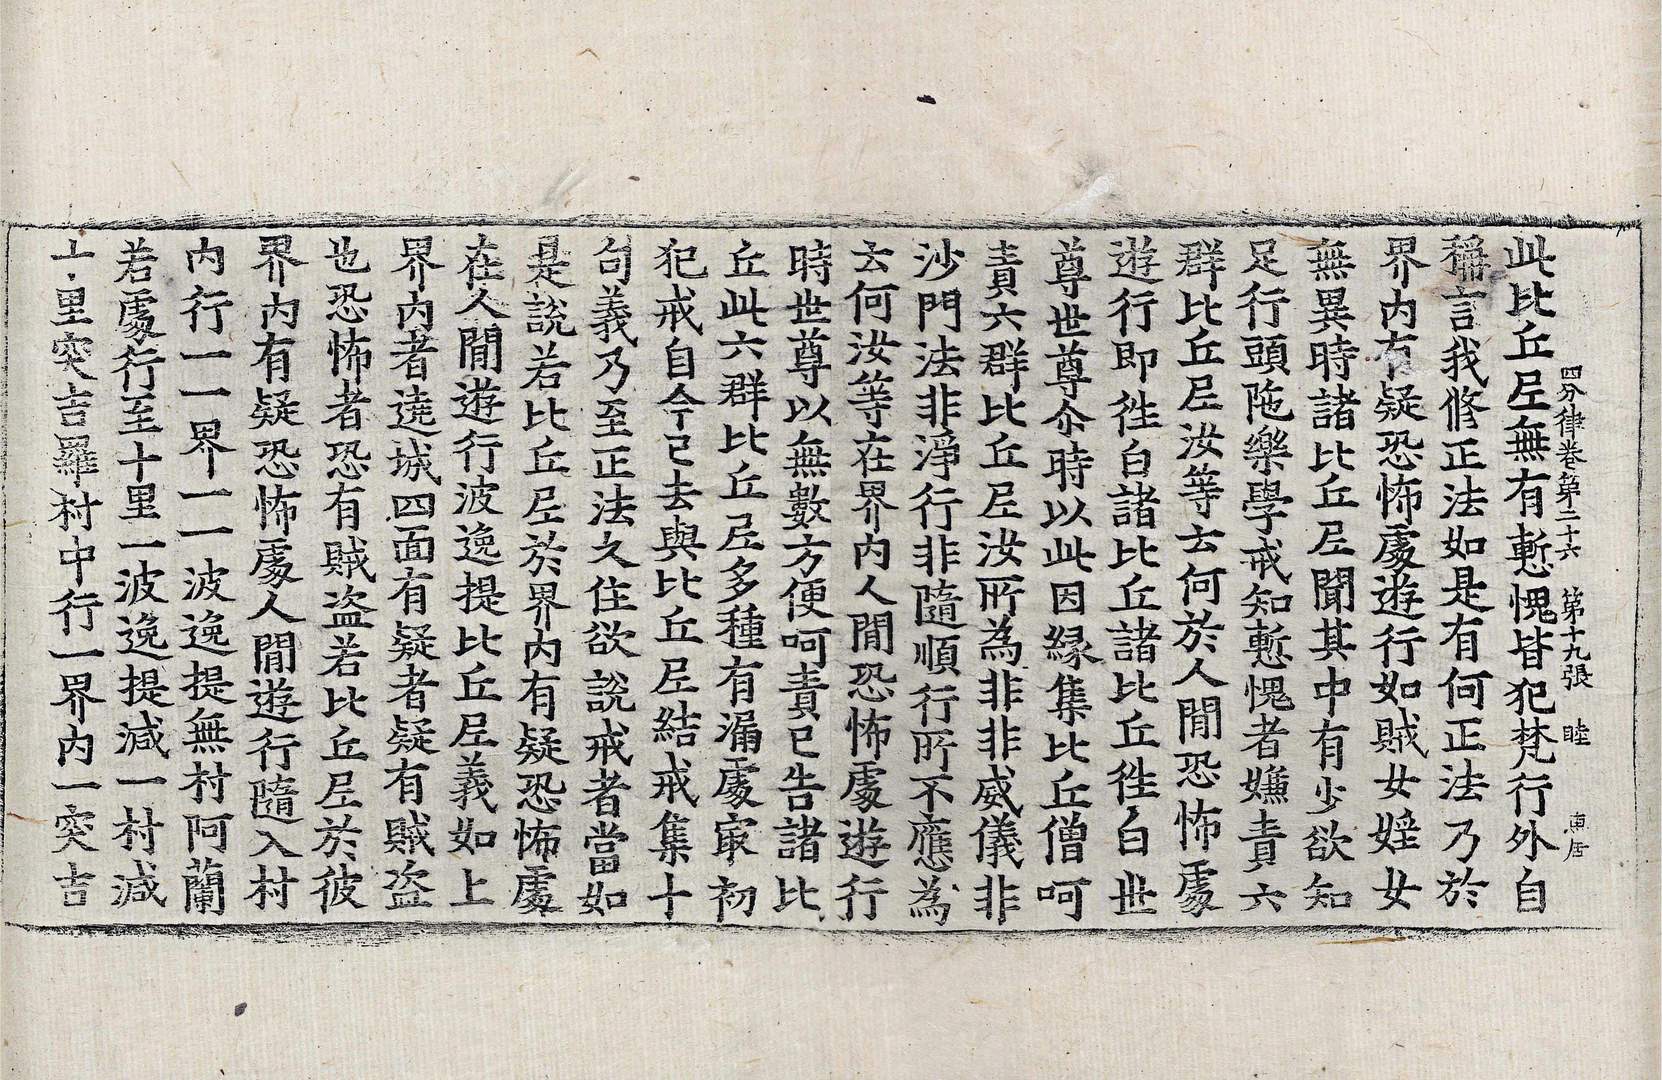 四分律卷第二十六 第十九張 睦
此比丘尼無有慙愧皆犯梵行外自
稱言我修正法如是有何正法乃於
界內有疑恐怖處遊行如賊女婬女
無異時諸比丘尼聞其中有少欲知
足行頭陁樂學戒知慙愧者嫌責六
群比丘尼汝等云何於人間恐怖處
遊行即徃白諸比丘諸比丘徃白世
尊世尊尒時以此因緣集比丘僧呵
責六群比丘尼汝所為非非威儀非
沙門法非淨行非隨順行所不應為
云何汝等在界內人間恐怖處遊行
時世尊以無數方便呵責已告諸比
丘此六群比丘尼多種有漏處㝡初
犯戒自今已去與比丘尼結戒集十
句義乃至正法久住欲說戒者當如
是說若比丘尼於界內有疑恐怖處
在人間遊行波逸提比丘尼義如上
界內者遶城四面有疑者疑有賊盗
也恐怖者恐有賊盗若比丘尼於彼
界內有疑恐怖處人間遊行隨入村
內行一一界一一波逸提無村阿蘭
若處行至十里一波逸提減一村減
十里突吉羅村中行一界內一突吉